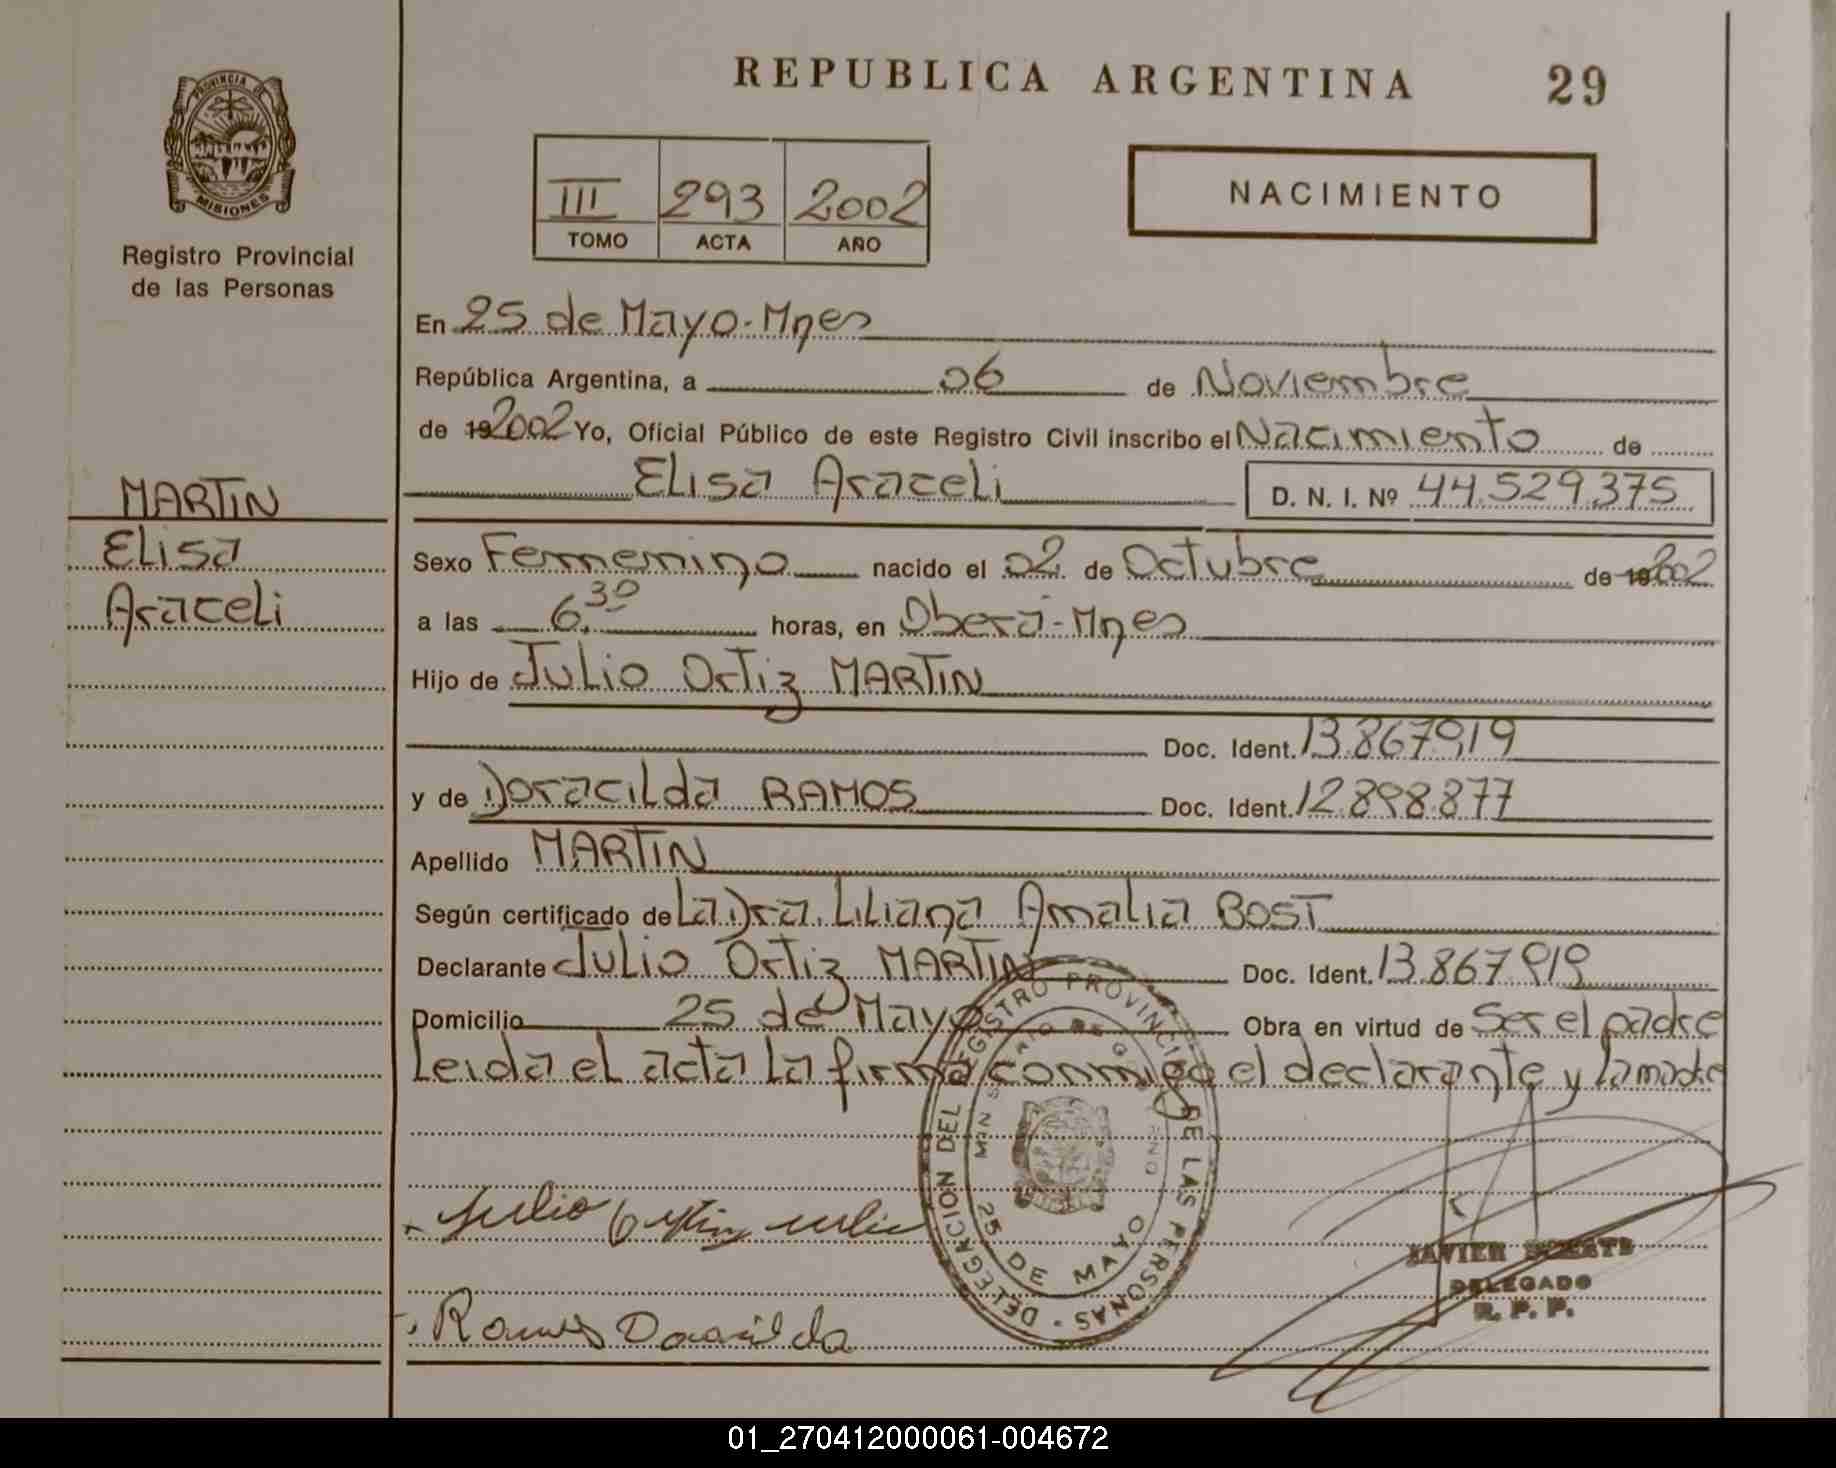 REPUBLICA ARGENTINA 29
PROVINCIA DE
MISIONES
Registro Provincial
de las Personas
III 293 2002
TOMO ACTA AÑO
NACIMIENTO
En 25 de Mayo-Mnes
República Argentina, a 06 de Noviembre
de 192002 Yo, Oficial Público de este Registro Civil inscribo el Nacimiento de
Elisa Araceli D. N. I. Nº 44.529.375
MARTIN
Elisa
Araceli
Sexo Femenino nacido el 02 de Octubre de 192002
a las 6,30 horas, en Oberá-Mnes
Hijo de Julio Ortiz MARTIN
Doc. Ident. 13.867919
y de Doracilda RAMOS Doc. Ident. 12.898.877
Apellido MARTIN
Según certificado de La Dra. Liliana Amalia BOST
Declarante Julio Ortiz MARTIN Doc. Ident. 13.867.919
Domicilio 25 de Mayo Obra en virtud de Ser el padre
Leida el acta la firma conmigo el declarante y la madre
DELEGACION DEL REGISTRO PROVINCIAL DE LAS PERSONAS
MINISTERIO DE GOBIERNO
25 DE MAYO
Julio Ortiz
Ramos Doracilda
JAVIER
DELEGADO
R. P. P.
01_270412000061-004672